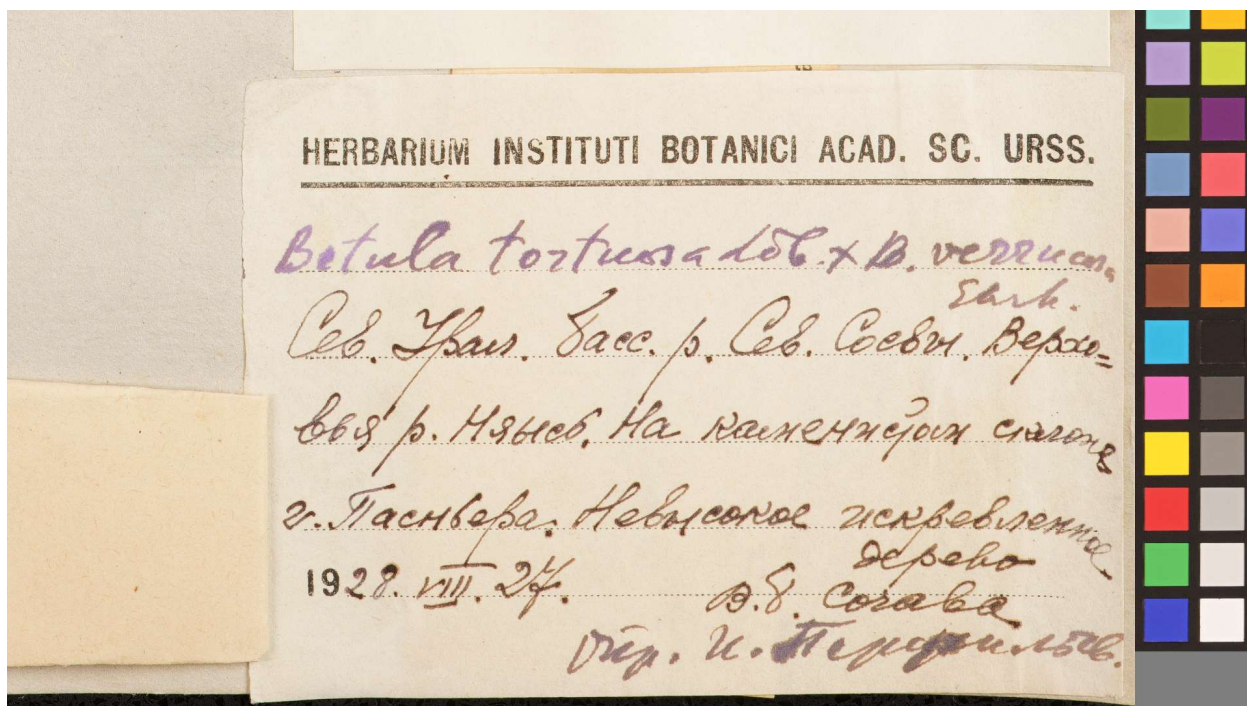 HERBARIUM INSTITUTI BOTANICI ACAD. SC. URSS.
Betula tortuosa Ldb. × B. verrucosa
Ehrh.
Сев. Урал. Басс. р. Сев. Сосвы. Верхо=
вья р. Няысь. На каменистом склоне
г. Пасньера. Невысокое искревленное
дерево
1928. VIII. 27. В.Б. Сочава
Опр. И. Перфильев.